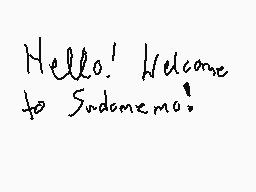 Hello! Welcome
to Sudomemo!